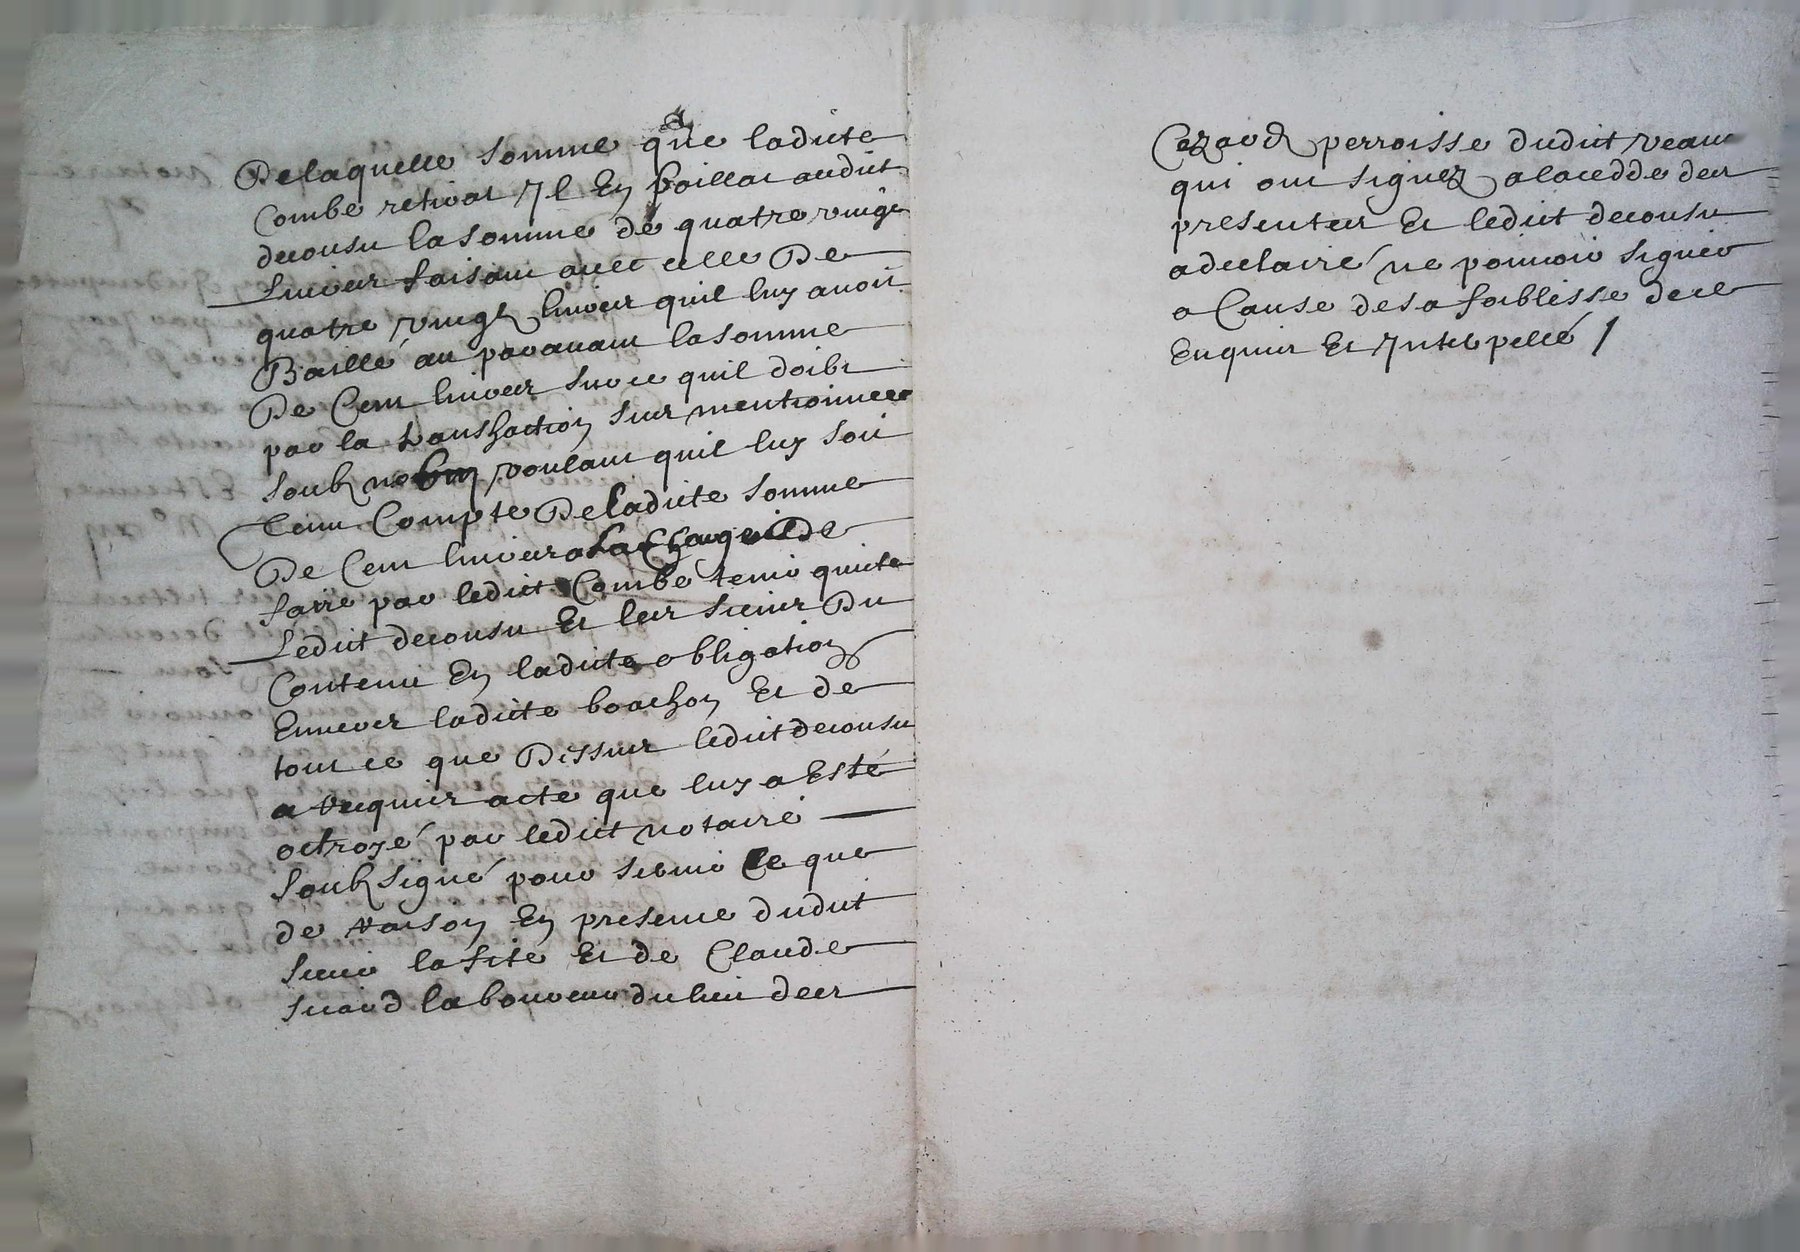 De laquelle somme que ladite
Combe retirat yl En bailla audit
decousu la somme de quatre vingt
Livres faisant avec celle De
quatre vingt livres quil luy avoit
Baillé au paravant la somme
De Cent livres sur ce quil doibt
par la transaction sus mentionnee
soubz voulant quil luy soit
tenu Compte De ladite somme
De Cent livres a la Charge De
faire par ledit Combe tenir quitte
Ledit decousu Et les siens Du
Contenu En ladite obligation
Envers ladite boachon Et de
tout ce que Dessus ledit decousu
a requis acte que luy a Esté
octroyé par ledit notaire
soubzsigné pour servir Ce que
de raison En presence dudit
sieur lafite Et de Claude
suard laboureur du lieu des
perroisse dudit veaux
qui ont signez a la cedde des
presentes Et ledit decousu
a declairé ne pouvoir signer
a Cause de sa foiblesse de ce
Enquis Et Interpellé /